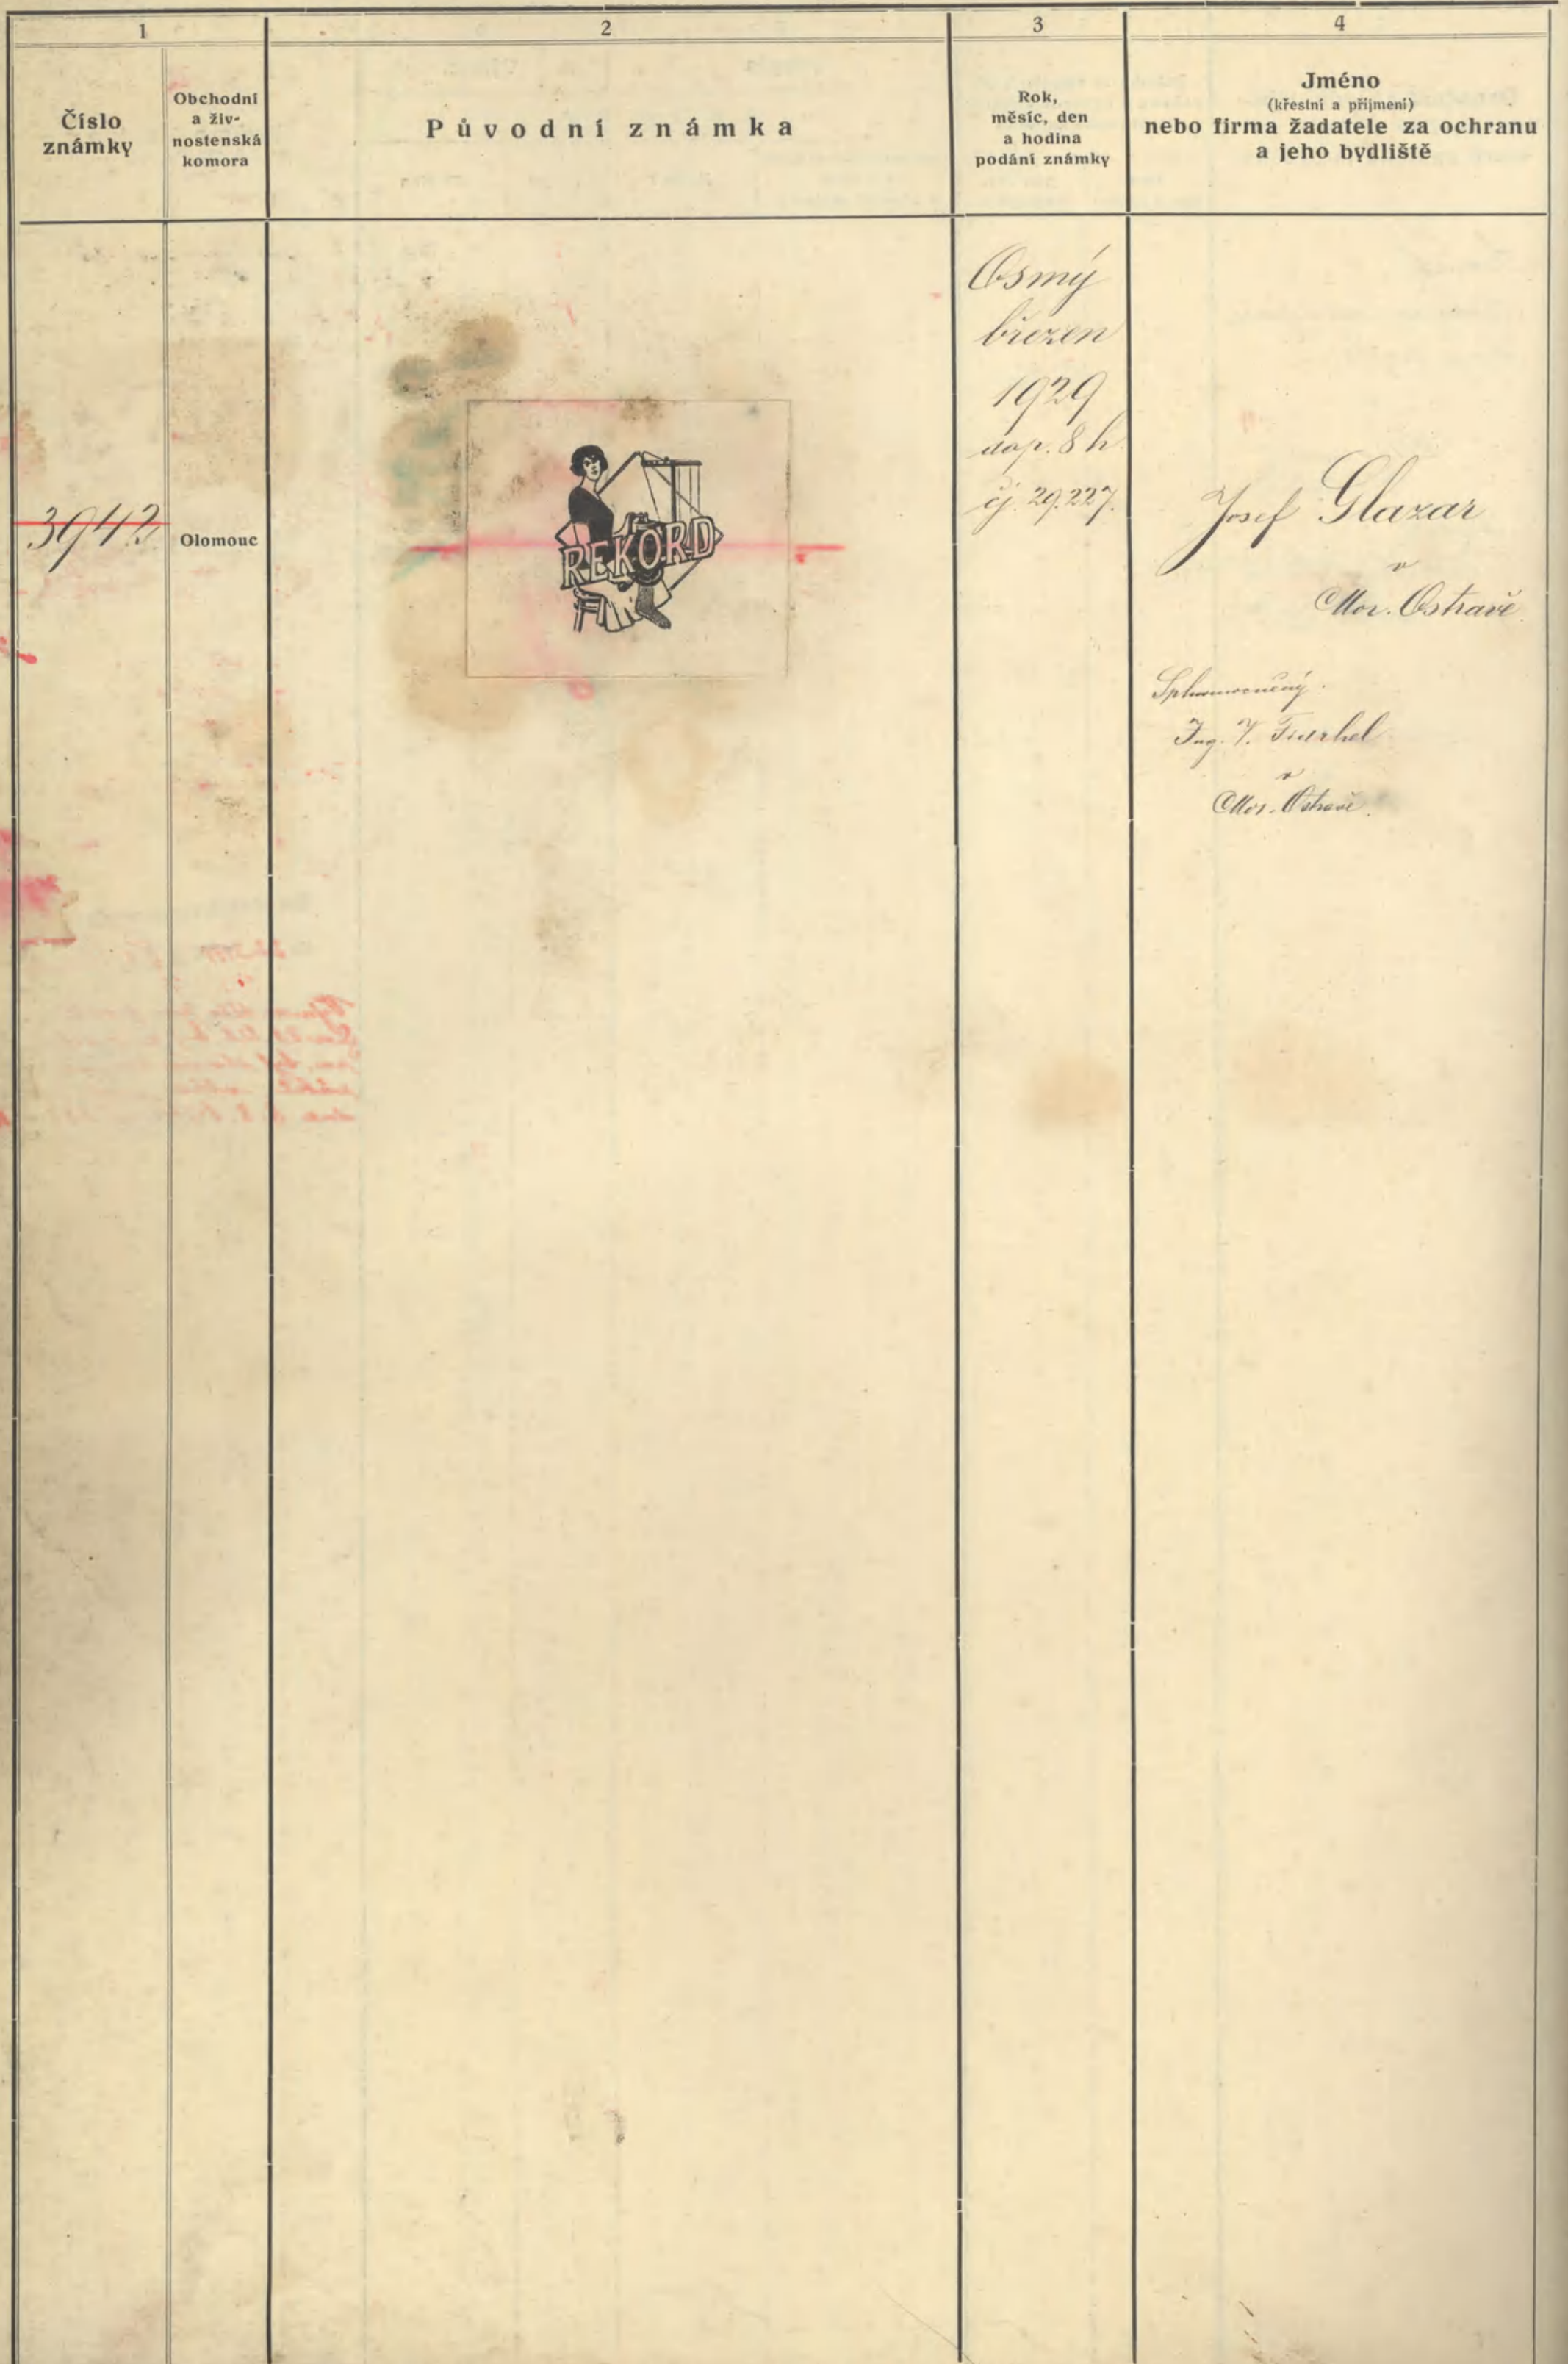 1
2
3
4
Číslo
známky
Obchodní
a živ-
nostenská
komora
Původní známka
Rok,
měsíc, den
a hodina
podání známky
Jméno
(křestní a příjmení)
nebo firma žadatele za ochranu
a jeho bydliště
3942
Olomouc
REKORD
Osmý
březen
1929
dop. 8 h
čj. 29.227.
Josef Glazar
v
Mor. Ostravě.
Splnomocněný:
Ing. V.
v
Mor. Ostravě.